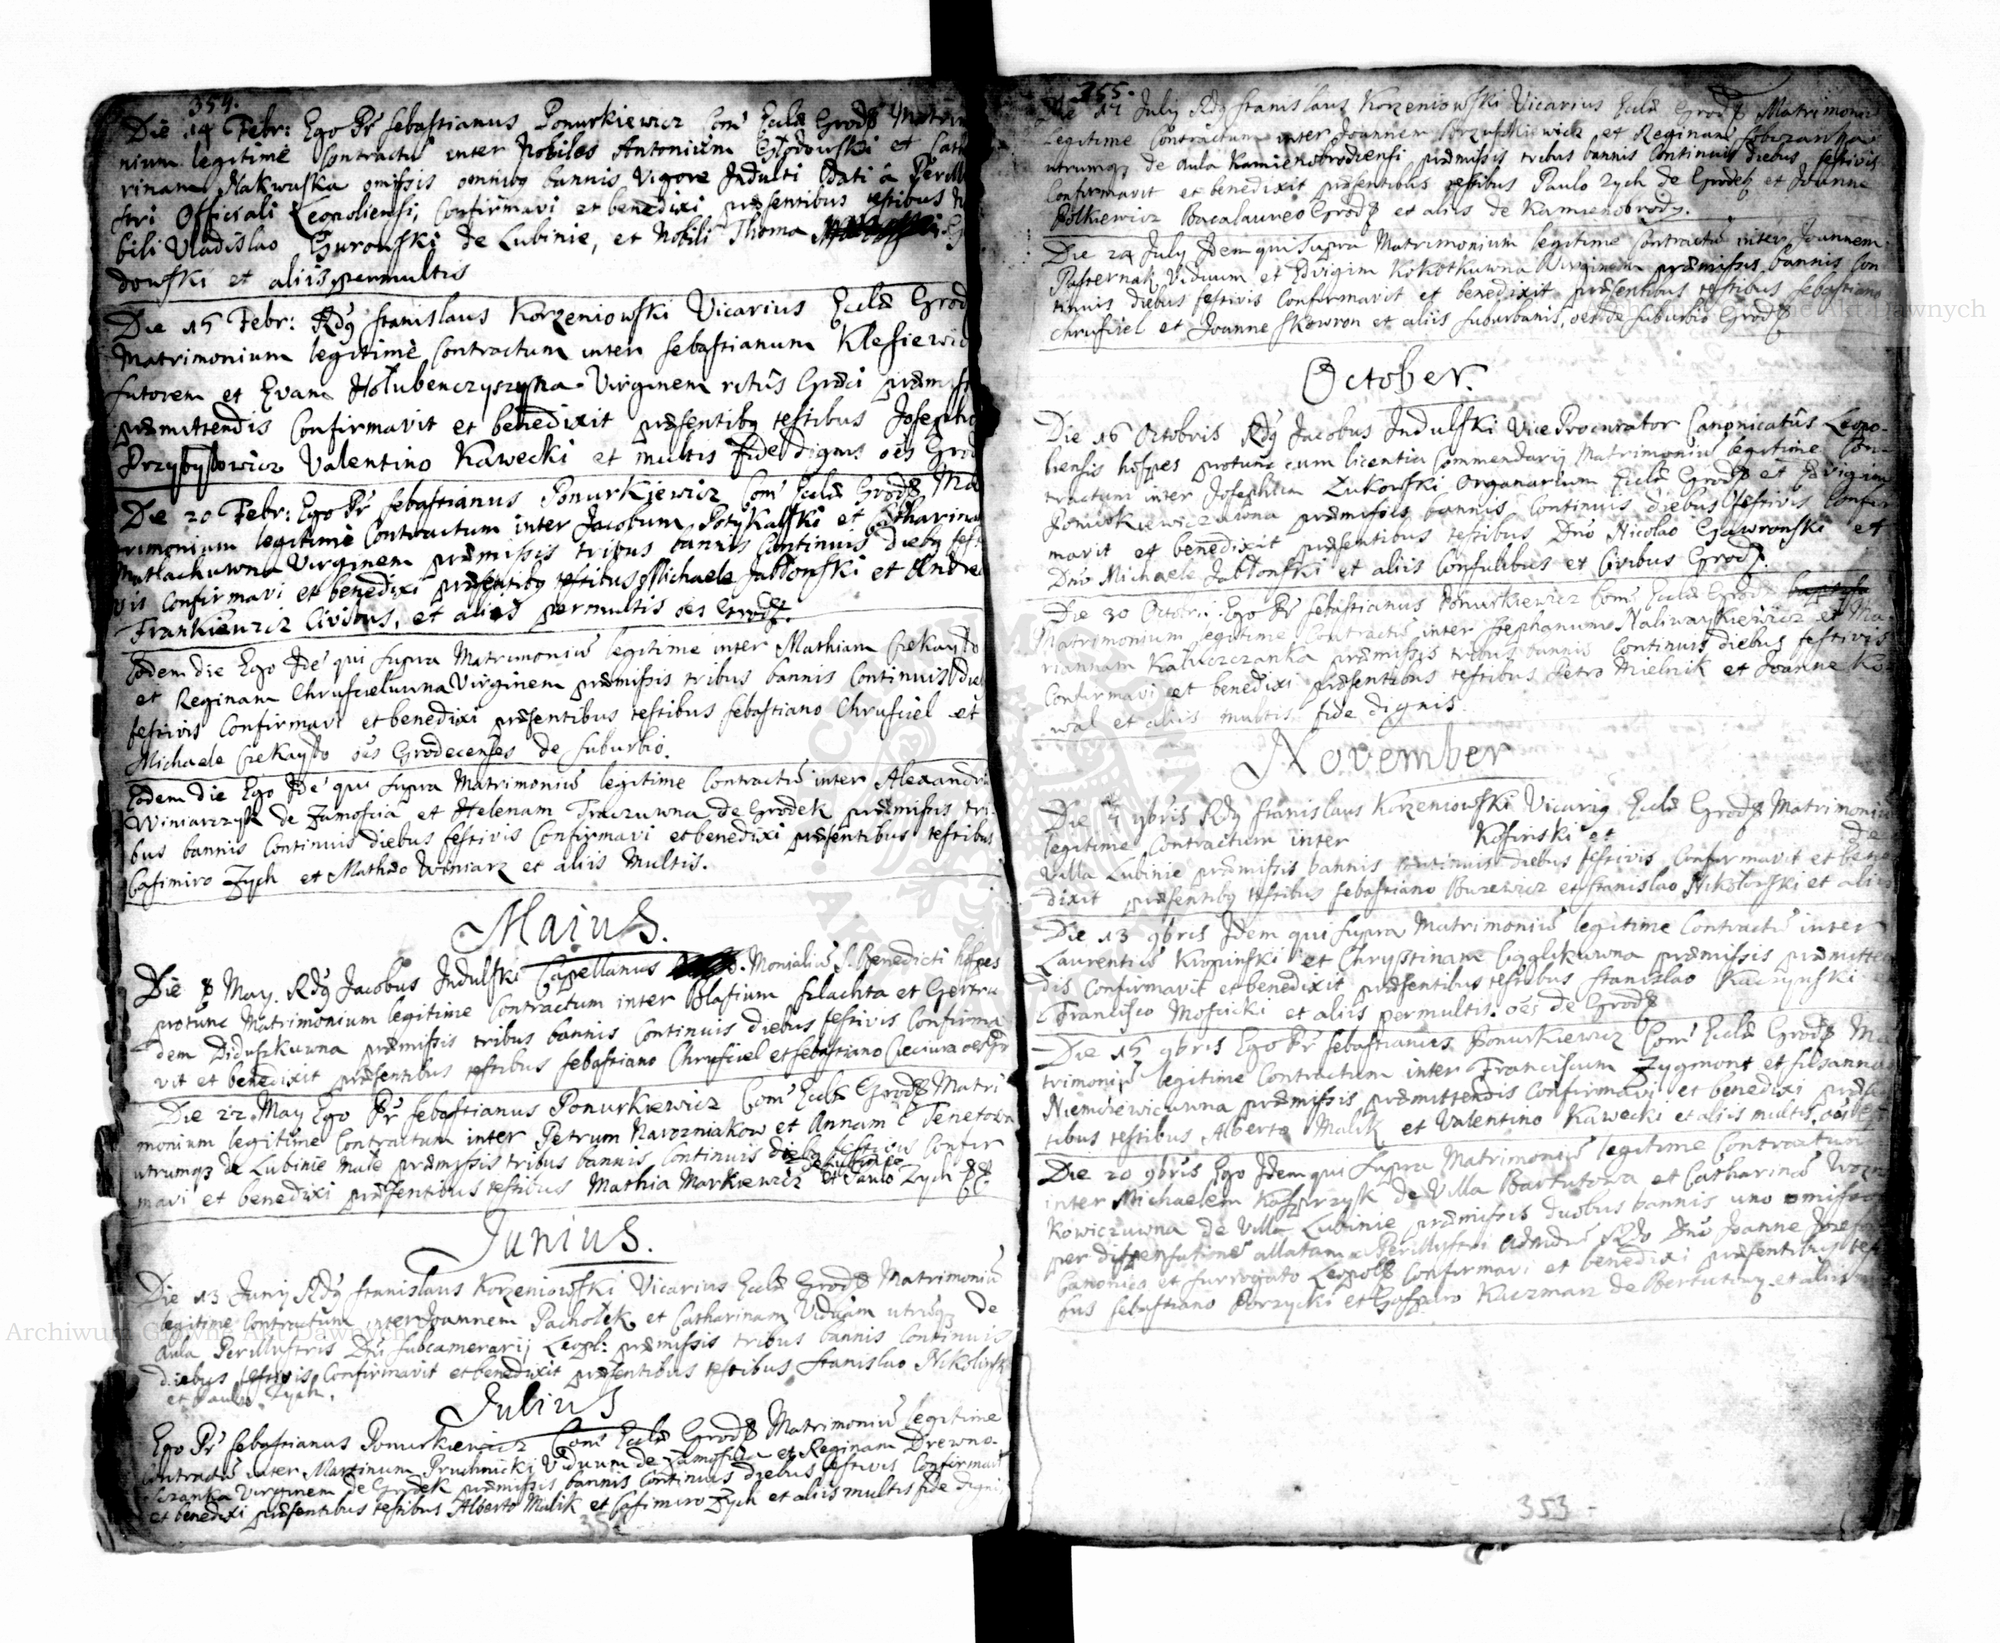 354.
Die 14 Febr: Ego Pr Sebastianus Ponurkiewicz Com Eccla Grod Matrimo
nium legitime Contractu inter Nobiles Antonium Głodowski et Cath
rinam Nakwaska omissis omnibq bannis vigore Indulti Dati à Perillu
stri Officiali Leopoliensi, Confirmavi et benedixi præsentibus testibus No
bili Vladislao Gurowski de Lubinie, et Nobili Thoma
dowski et aliis permultis
Die 15 Febr: Rdq Stanislaus Korzeniowski Vicarius Eccla Grod
Matrimonium legitimè Contractum inter Sebastianum Klesiewic
Sutorem et Evam Hołubenczyszyna Virginem ritûs Græci præmiss
præmittendis Confirmavit et benedixit præsentibq testibus Josepho
Przybyłowicz Valentino Kawecki et multis fide dignis oes Grod
Die 20 Febr: Ego Pr Sebastianus Ponurkiewicz Com Eccla Grod Ma
trimonium legitimè Contractum inter Jacobum Potykalski et Catharina
Matlachuwna Virginem præmissis tribus bannis Continuis diebq fest
vis Confirmavi et benedixi præsentibq testibus Michaele Jabłonski et Andre
Frankiewicz Civibus, et aliis permultis oes Grod.
Eodem die Ego Ide qui supra Matrimoniu legitime inter Mathiam Czekaydo
et Reginam Chrusczieluwna Virginem præmissis tribus bannis Continuis die
festivis Confirmavi et benedixi præsentibus testibus Sebastiano Chrusciel et
Michaele Czekaydo oes Grodecenses de Suburbio.
Eodem die Ego Ide qui supra Matrimoniu legitime Contractu inter Alexandru
Winiarczyk de Zamoscia et Helenam Traczuwna de Grodek præmissis tri-
bus bannis Continuis diebus festivis Confirmavi et benedixi præsentibus testibus
Casimiro Zych et Mathæo Winiarz et aliis multis.
Maius.
Die 8 May. Rdq Jacobus Indulski Capellanus Monialiu S. Benedicti hospes
protunc Matrimonium legitime Contractum inter Blasium Szlachta et Gertru
dem Diduszkuwna præmissis tribus bannis Continuis diebus festivis Confirma
vit et benedixit præsentibus testibus Sebastiano Chrusciel et Sebastiano Cieciura oes Gr
Die 22 May Ego Pr Sebastianus Ponurkiewicz Com Eccla Grod Matri
monium legitime Contractum inter Petrum Nawozniakow et Annam Tenetowna
utrumq de Lubinie Male præmissis tribus bannis Continuis diebq festivis Confir
mavi et benedixi præsentibus testibus Mathia Markiewicz de Lubinie et Paulo Zych
Junius.
Die 13 Junij Rdq Stanislaus Korzeniowski Vicarius Eccla Grod Matrimoniu
legitime Contractum inter Joannem Pachołek et Catharinam Viduam utrusq de
Aula Perillustris Dni Subcamerarij Leopol: præmissis tribus bannis Continuis
diebus festivis Confirmavit et benedixit præsentibus testibus Stanislao Nikolirski
et Paulo Zych.
Julius
Ego Pr Sebastianus Ponurkiewicz Com Eccla Grod Matrimoniu legitime
Contractu inter Martinum Pruchnicki Viduum de Zamoscia et Reginam Drewno-
czanka Virginem de Grodek præmissis bannis Continuis diebus festivis Confirmavi
et benedixi præsentibus testibus Alberto Malik et Casimiro Zych et aliis multis fide digni
355.
Die 17 July Rdq Stanislaus Korzeniowski Vicarius Eccla Grod Matrimoniu
legitime Contractum inter Joannem et Reginam
utrumq de Aula Kamienobrodiensi præmissis tribus bannis Continuis diebus festivis
Confirmavit et benedixit præsentibus testibus Paulo Zych de Grodek et Joanne
Bolkiewicz Bacalaureo Grod et aliis de Kamienobrody.
Die 24 July Idem qui supra Matrimonium legitime Contractu inter Joannem
Pasternak Viduum et Edvigim Kokotkuwna Virginem præmissis bannis Con
tinuis diebus festivis Confirmavit et benedixit præsentibus testibus Sebastiano
Chrusciel et Joanne Skowron et aliis Suburbanis, oes de Suburbio Grod
October.
Die 16 Octobris Rdq Jacobus Indulski Vice Procurator Canonicatûs Leopo-
liensis hospes protunc cum licentia Commendarij Matrimoniu legitime Con-
tractum inter Josephum Zukowski Organarium Eccla Grod et Edvigim
Ponurkiewiczuwna præmissis bannis Continuis diebus festivis Confir
mavit et benedixit præsentibus testibus Dno Nicolao Gawronski et
Dno Michaele Jabłonski et aliis Consulibus et Civibus Grod.
Die 30 Octobr: Ego Pr Sebastianus Ponurkiewicz Com Eccla Grod
Matrimonium legitime Contractu inter Stephanum Naliwaykiewicz et Ma-
riannam Kałuszczanka præmissis tribus bannis Continuis diebus festivis
Confirmavi et benedixi præsentibus testibus Petro Mielnik et Joanne Ko-
wal et aliis multis fide dignis.
November
Die 4 9bris Rdq Stanislaus Korzeniowski Vicariq Eccla Grod Matrimoniu
legitime Contractum inter Kosinski et de
Villa Lubinie præmissis bannis Continuis diebus festivis Confirmavit et bene
dixit præsentibq testibus Sebastiano Burewicz et Stanislao Nikolorski et aliis
Die 13 9bris Idem qui supra Matrimoniu legitime Contractu inter
Laurentiu Kropinski et Chrystinam præmissis præmitten
dis Confirmavit et benedixit præsentibus testibus Stanislao Kaczynski et
Francisco Moscicki et aliis permultis. oes de Grod
Die 15 9bris Ego Pr Sebastianus Ponurkiewicz Com Eccla Grod Ma
trimoniu legitime Contractum inter Franciscum Zygmont et Susannam
Niemirewicuwna præmissis præmittendis Confirmavi et benedixi præsen
tibus testibus Alberto Malik et Valentino Kawecki et aliis multis. oes
Die 20 9bris Ego Idem qui supra Matrimoniu legitime Contractum
inter Michaelem Kasprzyk de Villa Bartutowa et Catharinam Wozni
kowiczuwna de Villa Lubinie præmissis duobus bannis uno omisso
per dispensatione allatam a Perillustri Admdu Rdo Dno Joanne
Canonico et Surrogato Leopol Confirmavi et benedixi præsentibus testi
bus Sebastiano Porzycki et Gasparo Kuzman de Bertutowy et aliis
353
Archiwum Główne Akt Dawnych